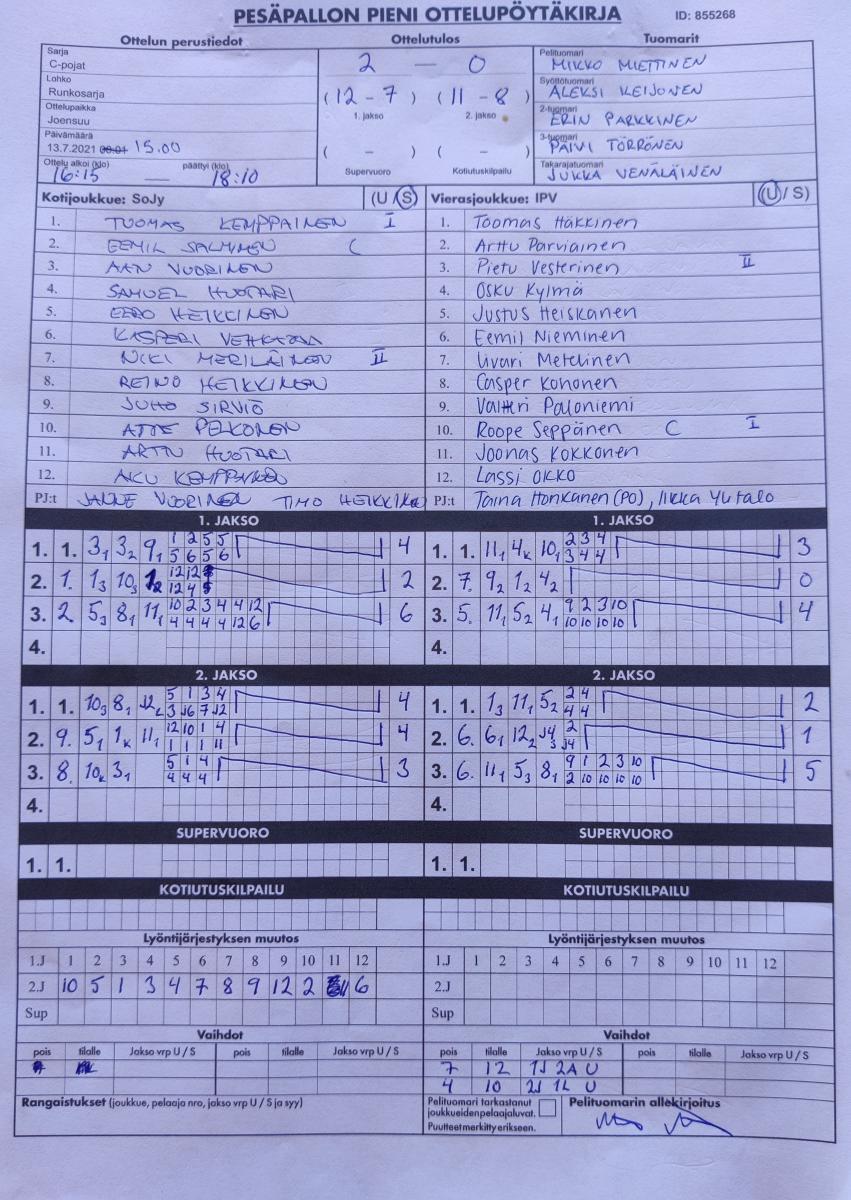 PESÄPALLON PIENI OTTELUPÖYTÄKIRJA ID: 855268
Ottelun perustiedot Ottelutulos Tuomarit
Sarja
C-pojat
Lohko
Runkosarja
Ottelupaikka
Joensuu
Päivämäärä
13.7.2021 00.01 15.00
Ottelu alkoi (klo) päättyi (klo)
16:15 — 18:10
2 — 0
(12 - 7) (11 - 8)
1. jakso 2. jakso
( - ) ( - )
Supervuoro Kotiutuskilpailu
Pelituomari
MIKKO MIETTINEN
Syöttötuomari
ALEKSI KEIJONEN
2-tuomari
ERIN PARKKINEN
3-tuomari
PÄIVI TÖRRÖNEN
Takarajatuomari
JUKKA VENÄLÄINEN
Kotijoukkue: SoJy (U / S)
1. TUOMAS KEMPPAINEN I
2. EEMIL SALMINEN C
3. AAN VUORINEN
4. SAMUEL HUOTARI
5. EERO HEIKKINEN
6. KASPERI
7. NIKI MERILÄINEN II
8. REINO HEIKKINEN
9. JUHO SIRVIÖ
10. ATTE PELKONEN
11. ARTTU HUOTARI
12. AKU KEMPPAINEN
PJ:t JANNE VUORINEN TIMO HEIKKINEN
Vierasjoukkue: IPV (U / S)
1. Toomas Häkkinen
2. Arttu Parviainen
3. Pietu Vesterinen II
4. Osku Kylmä
5. Justus Heiskanen
6. Eemil Nieminen
7. Iivari Meteläinen
8. Casper Kononen
9. Valtteri Paloniemi
10. Roope Seppänen C I
11. Joonas Kokkonen
12. Lassi Okko
PJ:t Taina Honkanen (PO), Iikka Yutalo
1. JAKSO
1. 1. 3₁ 3₂ 9₁ 1 2 5 5 4
5 6 5 6
2. 1. 1₃ 10₃ 12 12 2
12 4 5
3. 2 5₃ 8₁ 11₁ 10 2 3 4 4 12 6
4 4 4 4 12 6
4.
1. JAKSO
1. 1. 11₁ 4ₖ 10₁ 2 3 4 3
3 4 4
2. 7. 9₂ 1₂ 4₂ 0
3. 5. 11₁ 5₂ 4₁ 9 2 3 10 4
10 10 10 10
4.
2. JAKSO
1. 1. 10₃ 8₁ 12 5 1 3 4 4
3 6 7 12
2. 9. 5₁ 1ₖ 11₁ 12 10 1 4 4
1 1 1 11
3. 8. 10ₖ 3₁ 5 1 4 3
4 4 4
4.
2. JAKSO
1. 1. 1₃ 11₁ 5₂ 2 4 2
4 4
2. 6. 6₁ 12₂ 2 1
3. 6. 11₁ 5₃ 8₁ 9 1 2 3 10 5
2 10 10 10 10
4.
SUPERVUORO SUPERVUORO
1. 1. 1. 1.
KOTIUTUSKILPAILU KOTIUTUSKILPAILU
Lyöntijärjestyksen muutos
1.J 1 2 3 4 5 6 7 8 9 10 11 12
2.J 10 5 1 3 4 7 8 9 12 2 11 6
Sup
Lyöntijärjestyksen muutos
1.J 1 2 3 4 5 6 7 8 9 10 11 12
2.J
Sup
Vaihdot
pois tilalle Jakso vrp U / S pois tilalle Jakso vrp U / S
Vaihdot
pois tilalle Jakso vrp U / S pois tilalle Jakso vrp U / S
7 12 1J 2A U
4 10 2J 1L U
Rangaistukset (joukkue, pelaaja nro, jakso vrp U / S ja syy)
Pelituomari tarkastanut
joukkueiden pelaajaluvat.
Puutteet merkitty erikseen.
Pelituomarin allekirjoitus